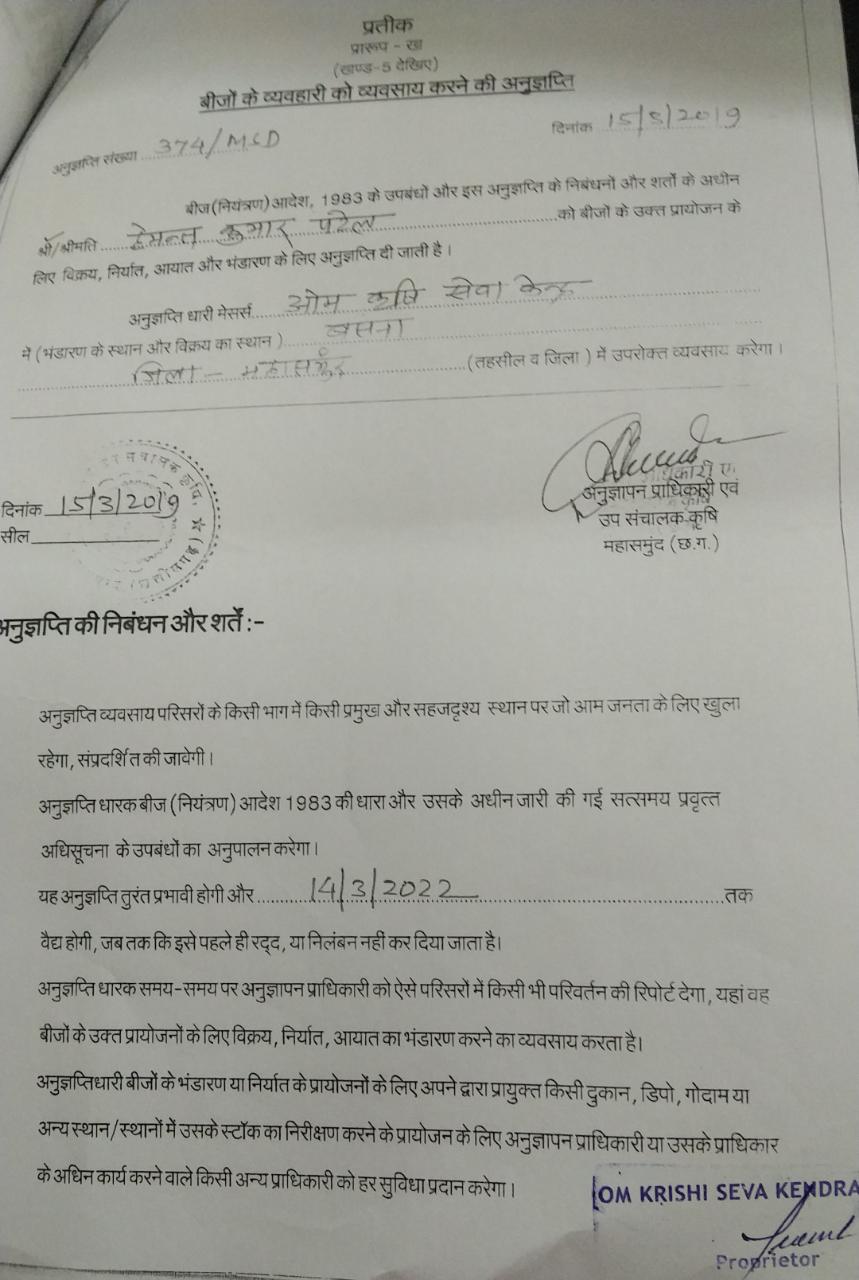 प्रतीक
प्रारूप - खा
(खण्ड-5 देखिए)
बीजों के व्यवहारी को व्यवसाय करने की अनुज्ञप्ति
अनुज्ञप्ति संख्या 374/MSD दिनांक 15/3/2019
बीज (नियंत्रण) आदेश, 1983 के उपबंधों और इस अनुज्ञप्ति के निबंधनों और शर्तो के अधीन
श्री/श्रीमति हेमन्त कुमार पटेल को बीजों के उक्त प्रायोजन के
लिए विक्रय, निर्यात, आयात और भंडारण के लिए अनुज्ञप्ति दी जाती है ।
अनुज्ञप्ति धारी मेसर्स ओम कृषि सेवा केन्द्र
में (भंडारण के स्थान और विक्रय का स्थान ) बसना
जिला - महासमुंद (तहसील व जिला ) में उपरोक्त व्यवसाय करेगा ।
दिनांक 15/3/2019
सील
अनुज्ञापन प्राधिकारी एवं
उप संचालक कृषि
महासमुंद (छ.ग.)
अनुज्ञप्ति की निबंधन और शर्ते :-
अनुज्ञप्ति व्यवसाय परिसरों के किसी भाग में किसी प्रमुख और सहजदृश्य स्थान पर जो आम जनता के लिए खुला
रहेगा, संप्रदर्शित की जावेगी ।
अनुज्ञप्ति धारक बीज (नियंत्रण) आदेश 1983 की धारा और उसके अधीन जारी की गई सत्समय प्रवृत्त
अधिसूचना के उपबंधों का अनुपालन करेगा ।
यह अनुज्ञप्ति तुरंत प्रभावी होगी और 14/3/2022 तक
वैद्य होगी, जब तक कि इसे पहले ही रद्द, या निलंबन नहीं कर दिया जाता है।
अनुज्ञप्ति धारक समय-समय पर अनुज्ञापन प्राधिकारी को ऐसे परिसरों में किसी भी परिवर्तन की रिपोर्ट देगा, यहां वह
बीजों के उक्त प्रायोजनों के लिए विक्रय, निर्यात, आयात का भंडारण करने का व्यवसाय करता है।
अनुज्ञप्तिधारी बीजों के भंडारण या निर्यात के प्रायोजनों के लिए अपने द्वारा प्रायुक्त किसी दुकान, डिपो, गोदाम या
अन्य स्थान/स्थानों में उसके स्टॉक का निरीक्षण करने के प्रायोजन के लिए अनुज्ञापन प्राधिकारी या उसके प्राधिकार
के अधिन कार्य करने वाले किसी अन्य प्राधिकारी को हर सुविधा प्रदान करेगा ।
OM KRISHI SEVA KENDRA
Proprietor